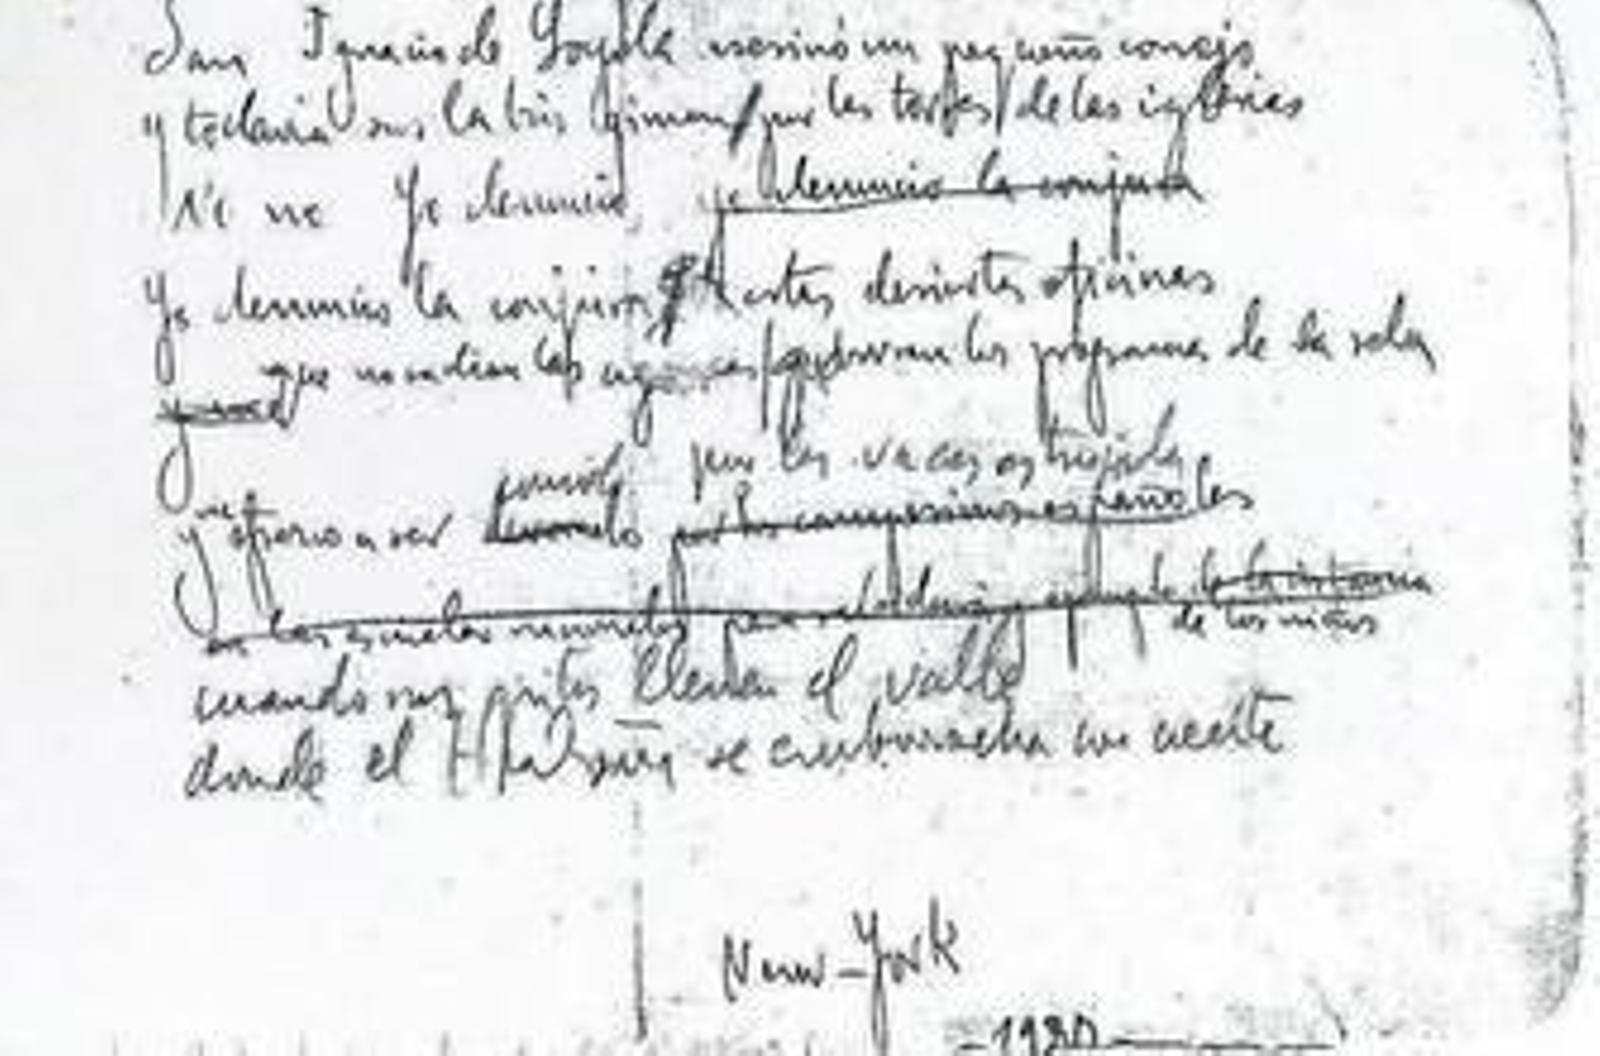 San Ignacio de Loyola asesinó un pequeño conejo
y todavía sus labios gimen / por las torres / de las iglesias
No no Yo denuncio, yo denuncio la conjura
Yo denuncio la conjura de estas desiertas oficinas
que no radian las agonías / que borran los programas de la selva
y me
comido por las vacas estrujadas
y me ofrezco a ser por los campesinos españoles
en las escuelas
de los niños
cuando sus gritos llenan el valle
donde el Hudson se emborracha con aceite
New-York
-1930